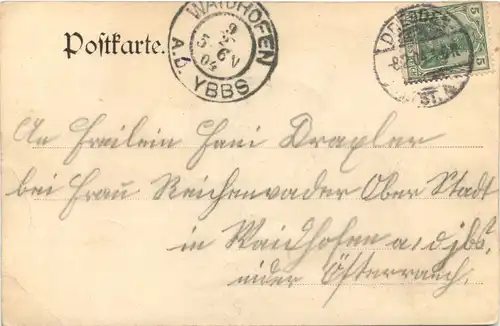 Postkarte.
WAIDHOFEN
A.D. YBBS
DRESDEN
5 5
An Freilein Hani Draxler
bei Frau Reichenvader Ober Stadt
in Waidhofen a, d jbs,
nider Österrauch,